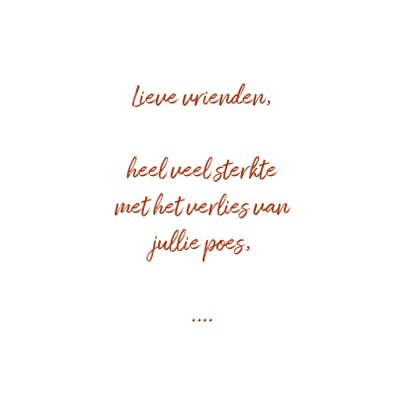 Lieve vrienden,
heel veel sterkte
met het verlies van
jullie poes,
....